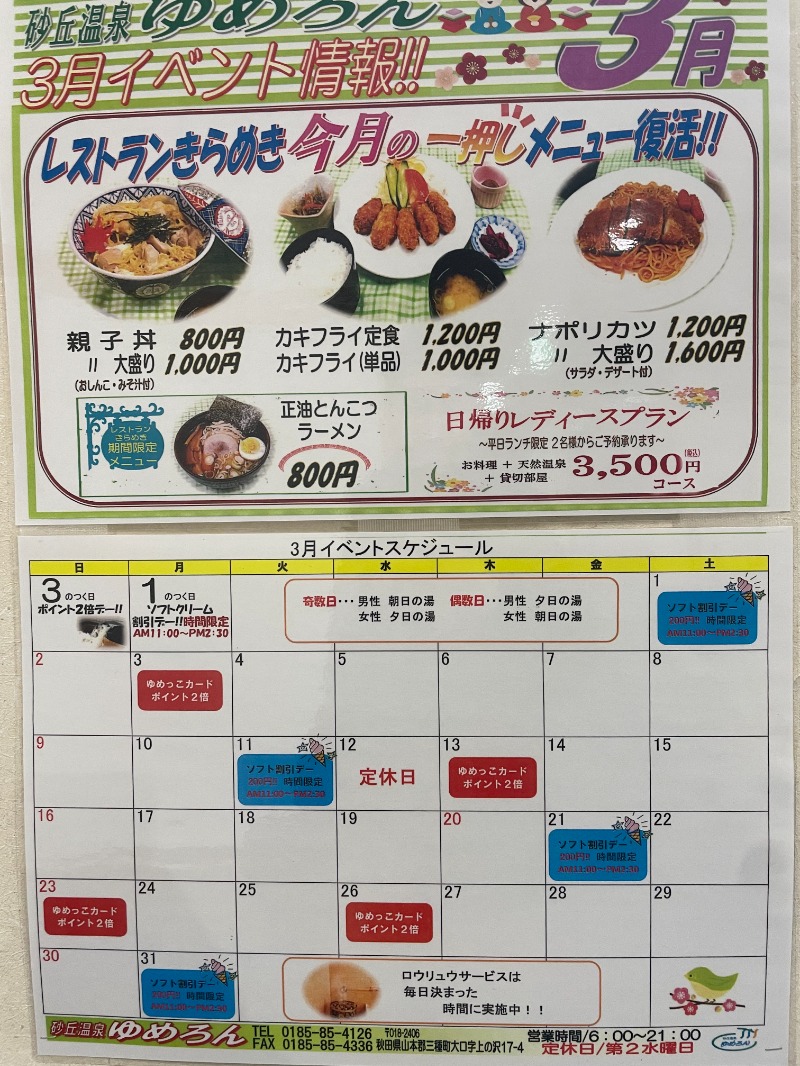 砂丘温泉 ゆめろん
3月
3月イベント情報!!
レストランきらめき 今月の一押しメニュー復活!!
親子丼 800円
〃 大盛り 1,000円
(おしんこ・みそ汁付)
カキフライ定食 1,200円
カキフライ(単品) 1,000円
ナポリカツ 1,200円
〃 大盛り 1,600円
(サラダ・デザート付)
レストラン
きらめき
期間限定
メニュー
正油とんこつ
ラーメン
800円
日帰りレディースプラン
~平日ランチ限定 2名様からご予約承ります~
お料理 + 天然温泉
+ 貸切部屋
3,500円(税込)
コース
3月イベントスケジュール
日 月 火 水 木 金 土
3のつく日
ポイント2倍デー!!
1のつく日
ソフトクリーム
割引デー!!時間限定
AM11:00~PM2:30
奇数日・・・男性 朝日の湯 偶数日・・・男性 夕日の湯
女性 夕日の湯 女性 朝日の湯
1
ソフト割引デー
200円!! 時間限定
AM11:00~PM2:30
2 3 4 5 6 7 8
ゆめっこカード
ポイント2倍
9 10 11 12 13 14 15
ソフト割引デー
200円!! 時間限定
AM11:00~PM2:30
定休日
ゆめっこカード
ポイント2倍
16 17 18 19 20 21 22
ソフト割引デー
200円!! 時間限定
AM11:00~PM2:30
23 24 25 26 27 28 29
ゆめっこカード
ポイント2倍
ゆめっこカード
ポイント2倍
30 31
ソフト割引デー
200円!! 時間限定
AM11:00~PM2:30
ロウリュウサービスは
毎日決まった
時間に実施中!!
砂丘温泉 ゆめろん
TEL 0185-85-4126 〒018-2406
FAX 0185-85-4336 秋田県山本郡三種町大口字上の沢17-4
営業時間/6:00~21:00
定休日/第2水曜日